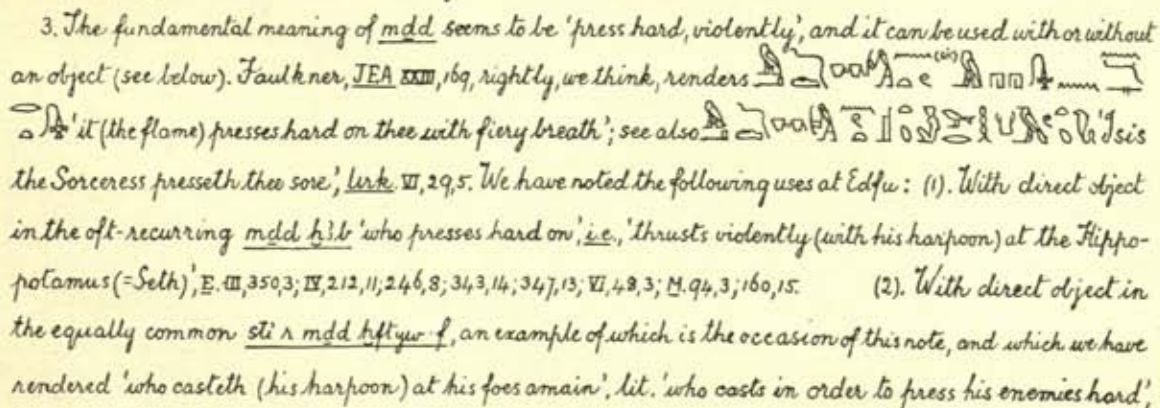 3. The fundamental meaning of mdd seems to be 'press hard, violently', and it can be used with or without
an object (see below). Faulkner, JEA XXIII, 169, rightly, we think, renders
'it (the flame) presses hard on thee with fiery breath'; see also 'Isis
the Sorceress presseth thee sore', Urk. VI, 29,5. We have noted the following uses at Edfu: (1). With direct object
in the oft-recurring mdd ḫꜣb 'who presses hard on', i.e., 'thrusts violently (with his harpoon) at the Hippo-
potamus (=Seth)', E. III, 350,3; IV, 212,11; 246,8; 343,14; 347,13; VI, 48,3; M. 94,3; 160,15. (2). With direct object in
the equally common sti r mdd ḫftyw·f, an example of which is the occasion of this note, and which we have
rendered 'who casteth (his harpoon) at his foes amain', lit. 'who casts in order to press his enemies hard',